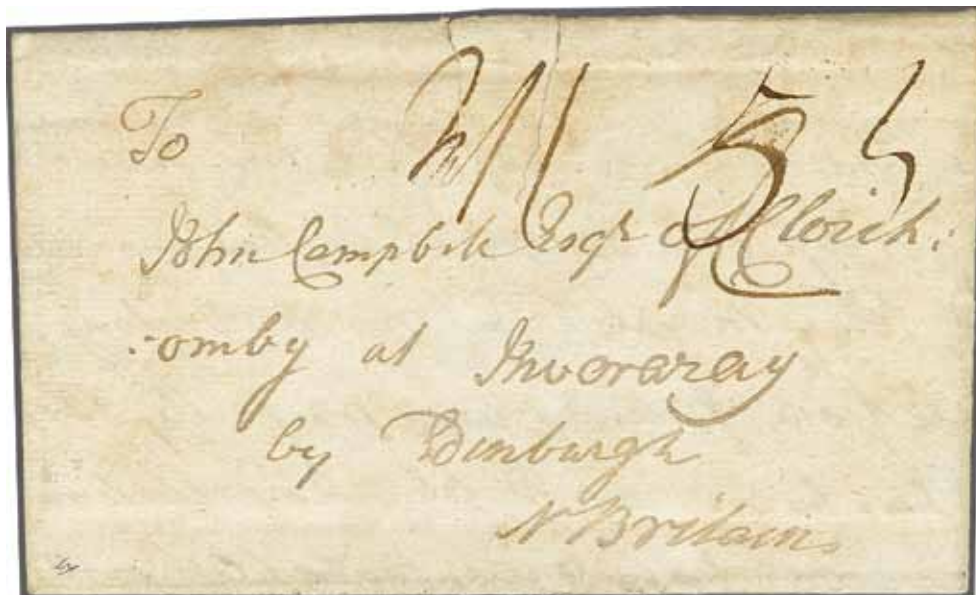 To
John Campbell Esqr of Cloich:
:omby at Invoraray
by Edinburgh
N Britain